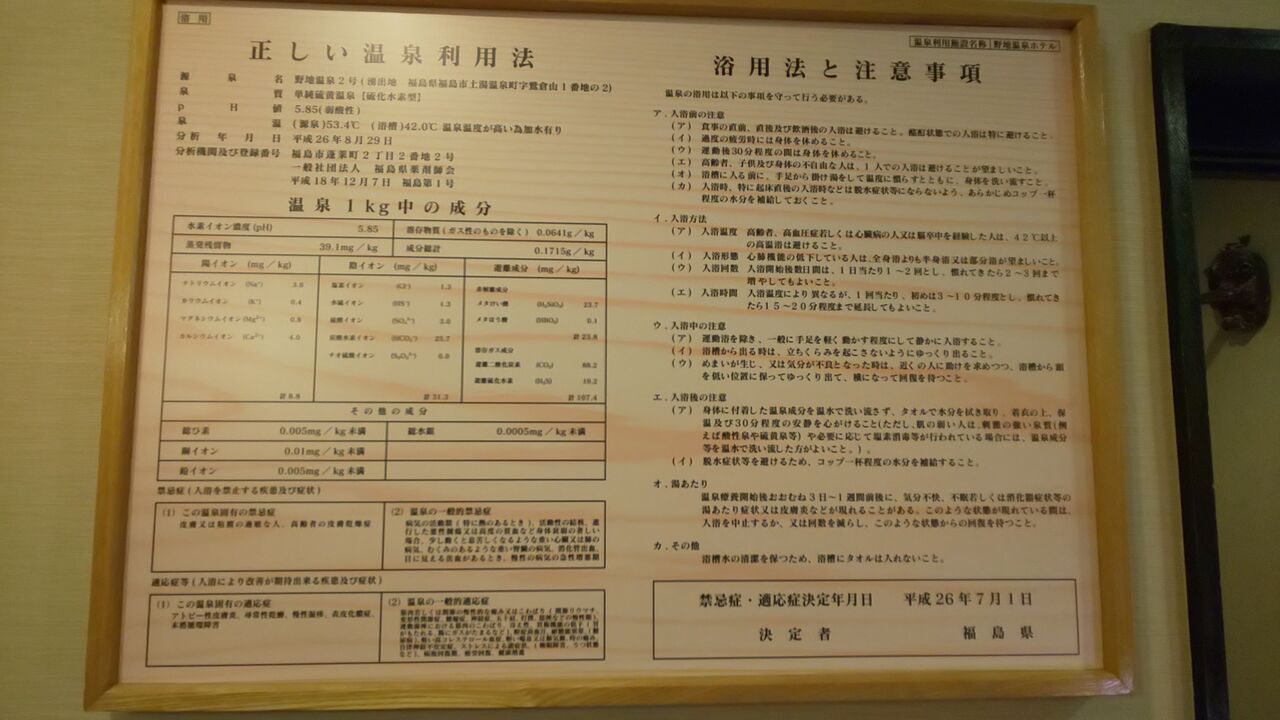 浴用
正しい温泉利用法
源泉名 野地温泉2号(湧出地 福島県福島市土湯温泉町字鷲倉山1番地の2)
泉質 単純硫黄温泉[硫化水素型]
pH値 5.85(弱酸性)
泉温 (源泉)53.4℃ (浴槽)42.0℃ 温泉温度が高い為加水有り
分析年月日 平成26年8月29日
分析機関及び登録番号 福島市蓬莱町2丁目2番地2号
一般社団法人 福島県薬剤師会
平成18年12月7日 福島第1号
温泉1kg中の成分
水素イオン濃度(pH) 5.85 溶存物質(ガス性のものを除く) 0.0641g/kg
蒸発残留物 39.1mg/kg 成分総計 0.1715g/kg
陽イオン (mg/kg) 陰イオン (mg/kg) 遊離成分 (mg/kg)
ナトリウムイオン (Na⁺) 3.6
カリウムイオン (K⁺) 0.4
マグネシウムイオン(Mg²⁺) 0.8
カルシウムイオン (Ca²⁺) 4.0
計 8.8
塩素イオン (Cl⁻) 1.3
水硫イオン (HS⁻) 1.3
硫酸イオン (SO₄²⁻) 3.0
炭酸水素イオン (HCO₃⁻) 25.7
チオ硫酸イオン (S₂O₃²⁻) 0.0
計 31.3
非解離成分
メタけい酸 (H₂SiO₃) 23.7
メタほう酸 (HBO₂) 0.1
計 23.8
溶存ガス成分
遊離二酸化炭素 (CO₂) 88.2
遊離硫化水素 (H₂S) 19.2
計 107.4
その他の成分
総ひ素 0.005mg/kg未満 総水銀 0.0005mg/kg未満
銅イオン 0.01mg/kg未満
鉛イオン 0.005mg/kg未満
禁忌症(入浴を禁止する疾患及び症状)
(1) この温泉固有の禁忌症
皮膚又は粘膜の過敏な人、高齢者の皮膚乾燥症
(2) 温泉の一般的禁忌症
病気の活動期(特に熱のあるとき)、活動性の結核、進
行した悪性腫瘍又は高度の貧血など身体衰弱の著しい
場合、少し動くと息苦しくなるような重い心臓又は肺の
病気、むくみのあるような重い腎臓の病気、消化管出血、
目に見える出血があるとき、慢性の病気の急性増悪期
適応症等(入浴により改善が期待出来る疾患及び症状)
(1) この温泉固有の適応症
アトピー性皮膚炎、尋常性乾癬、慢性湿疹、表皮化膿症、
末梢循環障害
(2) 温泉の一般的適応症
筋肉若しくは関節の慢性的な痛み又はこわばり(関節リウマチ、
変形性関節症、腰痛症、神経痛、五十肩、打撲、捻挫などの慢性期)、
運動麻痺における筋肉のこわばり、冷え性、胃腸機能の低下(胃
がもたれる、腸にガスがたまるなど)、軽症高血圧、耐糖能異常(糖
尿病)、軽い高コレステロール血症、軽い喘息又は肺気腫、痔の痛み、
自律神経不安定症、ストレスによる諸症状(睡眠障害、うつ状態
など)、病後回復期、疲労回復、健康増進
温泉利用施設名称 野地温泉ホテル
浴用法と注意事項
温泉の浴用は以下の事項を守って行う必要がある。
ア.入浴前の注意
(ア) 食事の直前、直後及び飲酒後の入浴は避けること。酩酊状態での入浴は特に避けること。
(イ) 過度の疲労時には身体を休めること。
(ウ) 運動後30分程度の間は身体を休めること。
(エ) 高齢者、子供及び身体の不自由な人は、1人での入浴は避けることが望ましいこと。
(オ) 浴槽に入る前に、手足から掛け湯をして温度に慣らすとともに、身体を洗い流すこと。
(カ) 入浴時、特に起床直後の入浴時などは脱水症状等にならないよう、あらかじめコップ一杯
程度の水分を補給しておくこと。
イ.入浴方法
(ア) 入浴温度 高齢者、高血圧症若しくは心臓病の人又は脳卒中を経験した人は、42℃以上
の高温浴は避けること。
(イ) 入浴形態 心肺機能の低下している人は、全身浴よりも半身浴又は部分浴が望ましいこと。
(ウ) 入浴回数 入浴開始後数日間は、1日当たり1~2回とし、慣れてきたら2~3回まで
増やしてもよいこと。
(エ) 入浴時間 入浴温度により異なるが、1回当たり、初めは3~10分程度とし、慣れてき
たら15~20分程度まで延長してもよいこと。
ウ.入浴中の注意
(ア) 運動浴を除き、一般に手足を軽く動かす程度にして静かに入浴すること。
(イ) 浴槽から出る時は、立ちくらみを起こさないようにゆっくり出ること。
(ウ) めまいが生じ、又は気分が不良となった時は、近くの人に助けを求めつつ、浴槽から頭
を低い位置に保ってゆっくり出て、横になって回復を待つこと。
エ.入浴後の注意
(ア) 身体に付着した温泉成分を温水で洗い流さず、タオルで水分を拭き取り、着衣の上、保
温及び30分程度の安静を心がけること(ただし、肌の弱い人は、刺激の強い泉質(例
えば酸性泉や硫黄泉等)や必要に応じて塩素消毒等が行われている場合には、温泉成分
等を温水で洗い流した方がよいこと。)。
(イ) 脱水症状等を避けるため、コップ一杯程度の水分を補給すること。
オ.湯あたり
温泉療養開始後おおむね3日~1週間前後に、気分不快、不眠若しくは消化器症状等の
湯あたり症状又は皮膚炎などが現れることがある。このような状態が現れている間は、
入浴を中止するか、又は回数を減らし、このような状態からの回復を待つこと。
カ.その他
浴槽水の清潔を保つため、浴槽にタオルは入れないこと。
禁忌症・適応症決定年月日 平成26年7月1日
決定者 福島県